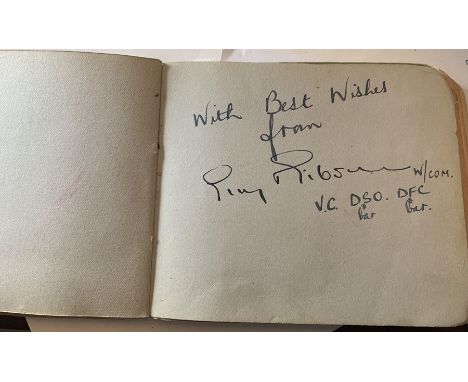 With Best Wishes
from
Guy Gibson W/COM.
V.C. DSO. DFC
Bar Bar.